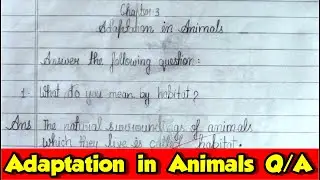 Chapter:3
Adaptation in Animals
Answer the following question:
1. What do you mean by habitat?
Ans The natural surroundings of animals
which they live is called habitat.
Adaptation in Animals Q/A